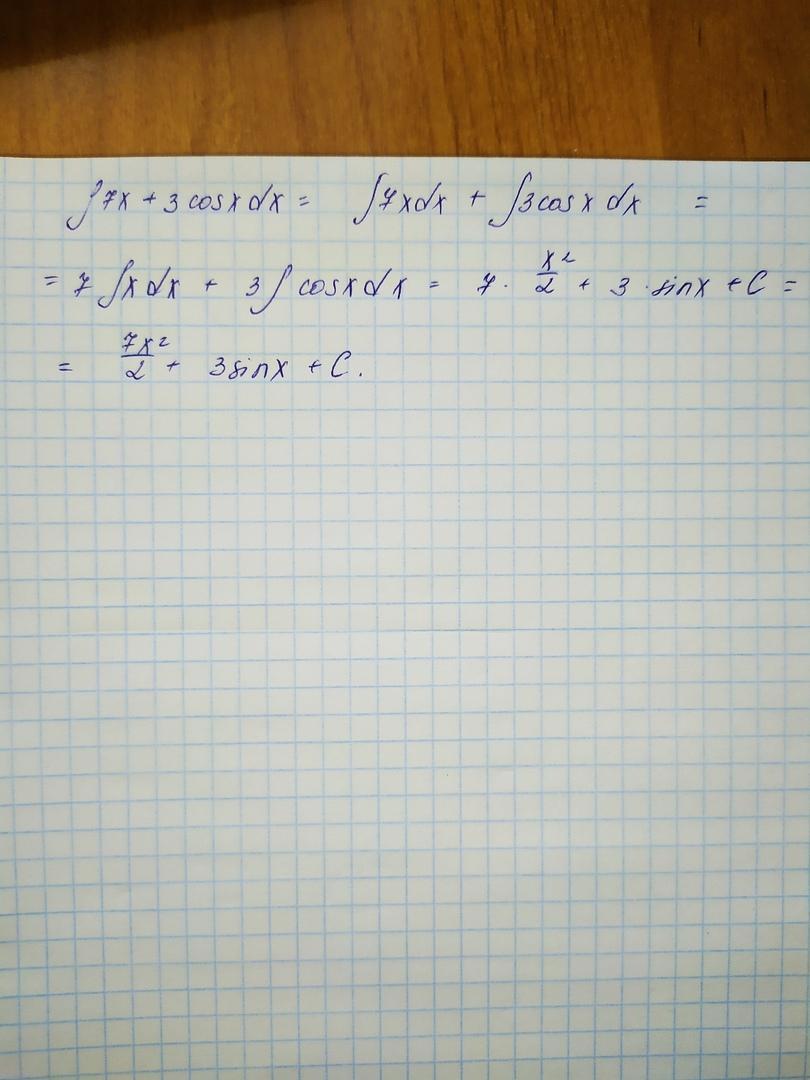 ∫7x + 3 cosx dx = ∫7xdx + ∫3cosx dx =
= 7 ∫x dx + 3∫ cosx dx = 7 · x²/2 + 3 · sinx + C =
= 7x²/2 + 3sinx + C.